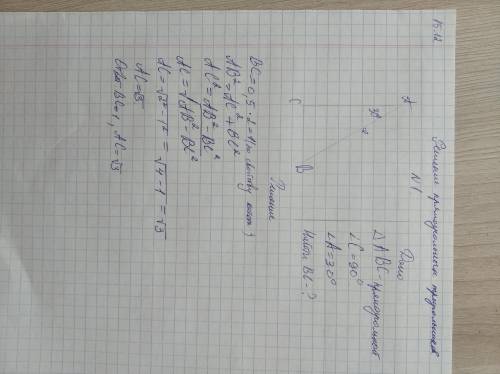 15.12
Решение прямоугольных треугольников
N1
Дано
△ABC - прямоугольный
∠C = 90°
∠A = 30°
Найти BC - ?
A
30°
2
C
B
Решение
BC = 0,5 · 2 = 1 (по свойству
AB² = AC² + BC²
AC² = AB² - BC²
AC = √AB² - BC²
AC = √2² - 1² = √4 - 1 = √3
AC = √3
Ответ: BC = 1, AC = √3